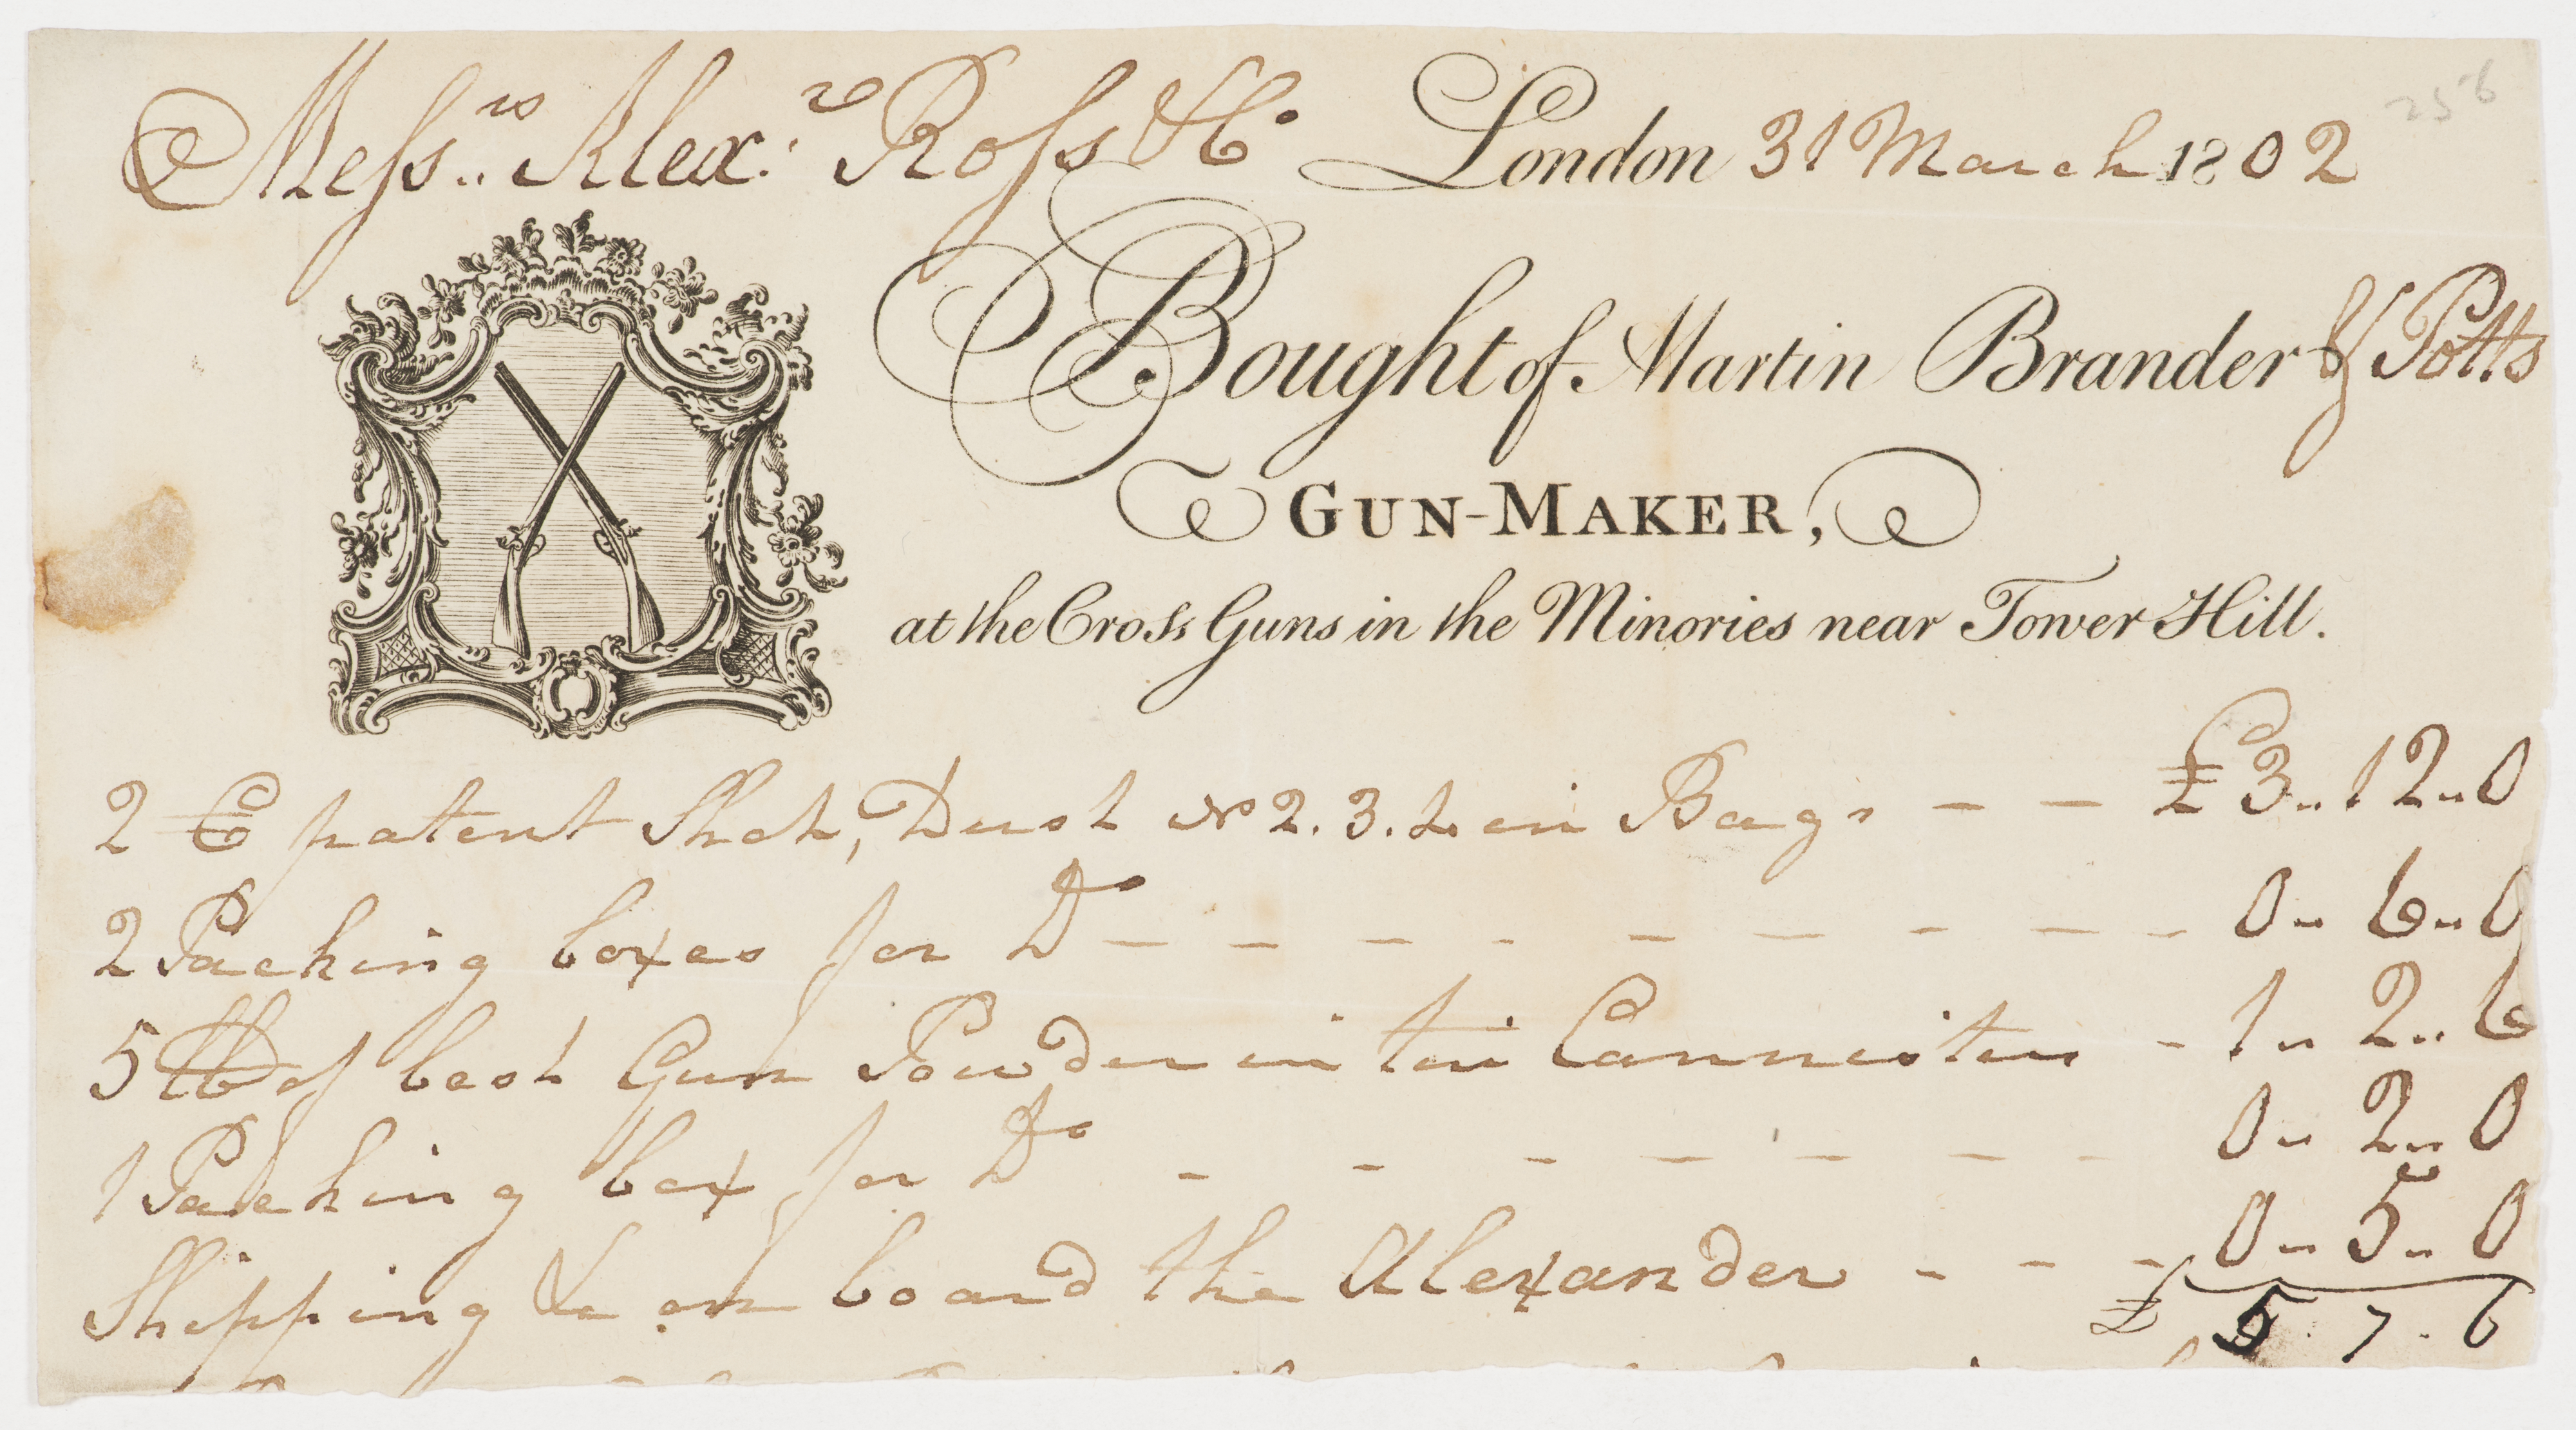 256
Messrs. Alexr. Ross & Co London 31 March 1802
Bought of Martin Brander & Potts
GUN-MAKER,
at the Cross Guns in the Minories near Tower Hill.
2 C patent Shot, Dust No 2. 3. 4 in Bags - - £3..12..0
2 Packing boxes for Do - - - - - - - - - 0..6..0
5 lb of best Gun Powder in tin Cannister - 1..2..6
1 Packing box for Do - - - - - - - 0..2..0
Shipping &c on board the Alexander - - - 0..5..0
£5.7.6